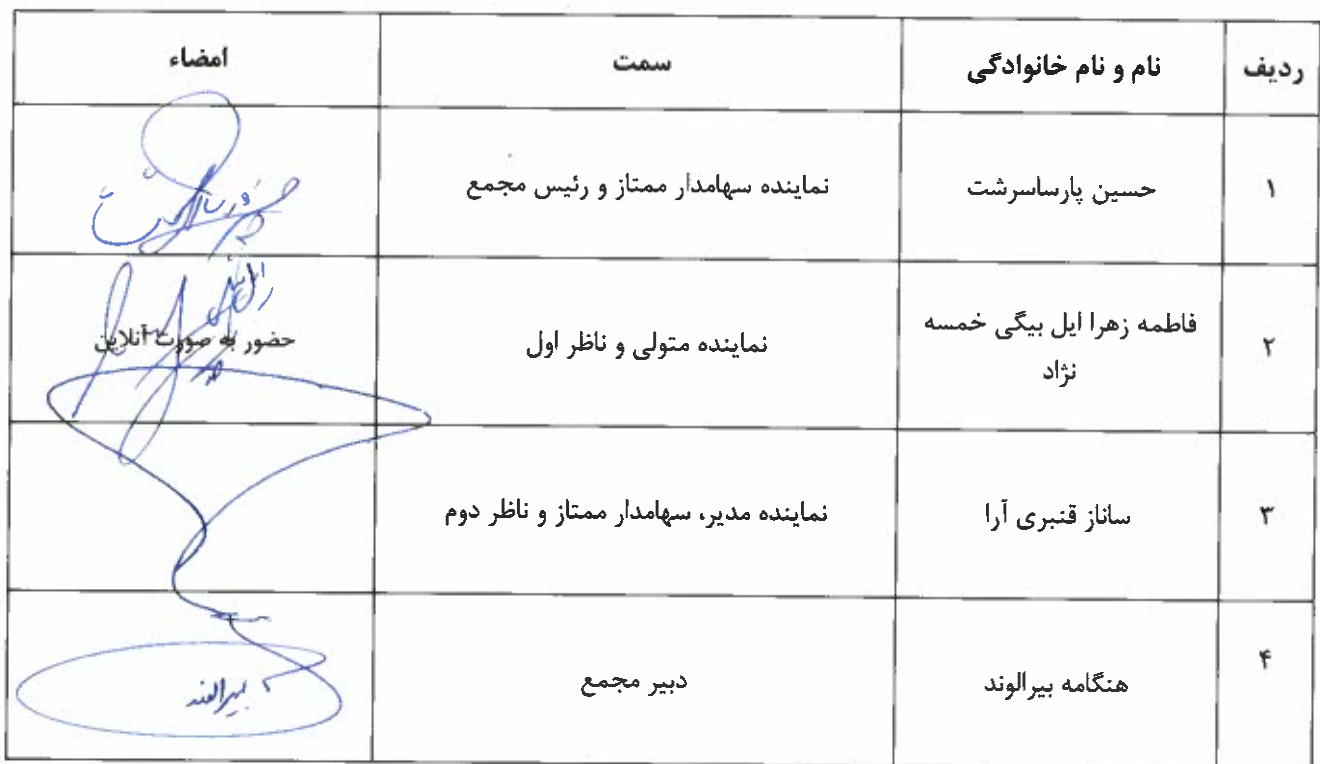 ردیف	نام و نام خانوادگی	سمت	امضاء
۱	حسین پارساسرشت	نماینده سهامدار ممتاز و رئیس مجمع
۲	فاطمه زهرا ایل بیگی خمسه نژاد	نماینده متولی و ناظر اول	حضور به صورت آنلاین
۳	ساناز قنبری آرا	نماینده مدیر، سهامدار ممتاز و ناظر دوم
۴	هنگامه بیرالوند	دبیر مجمع	بیرالوند